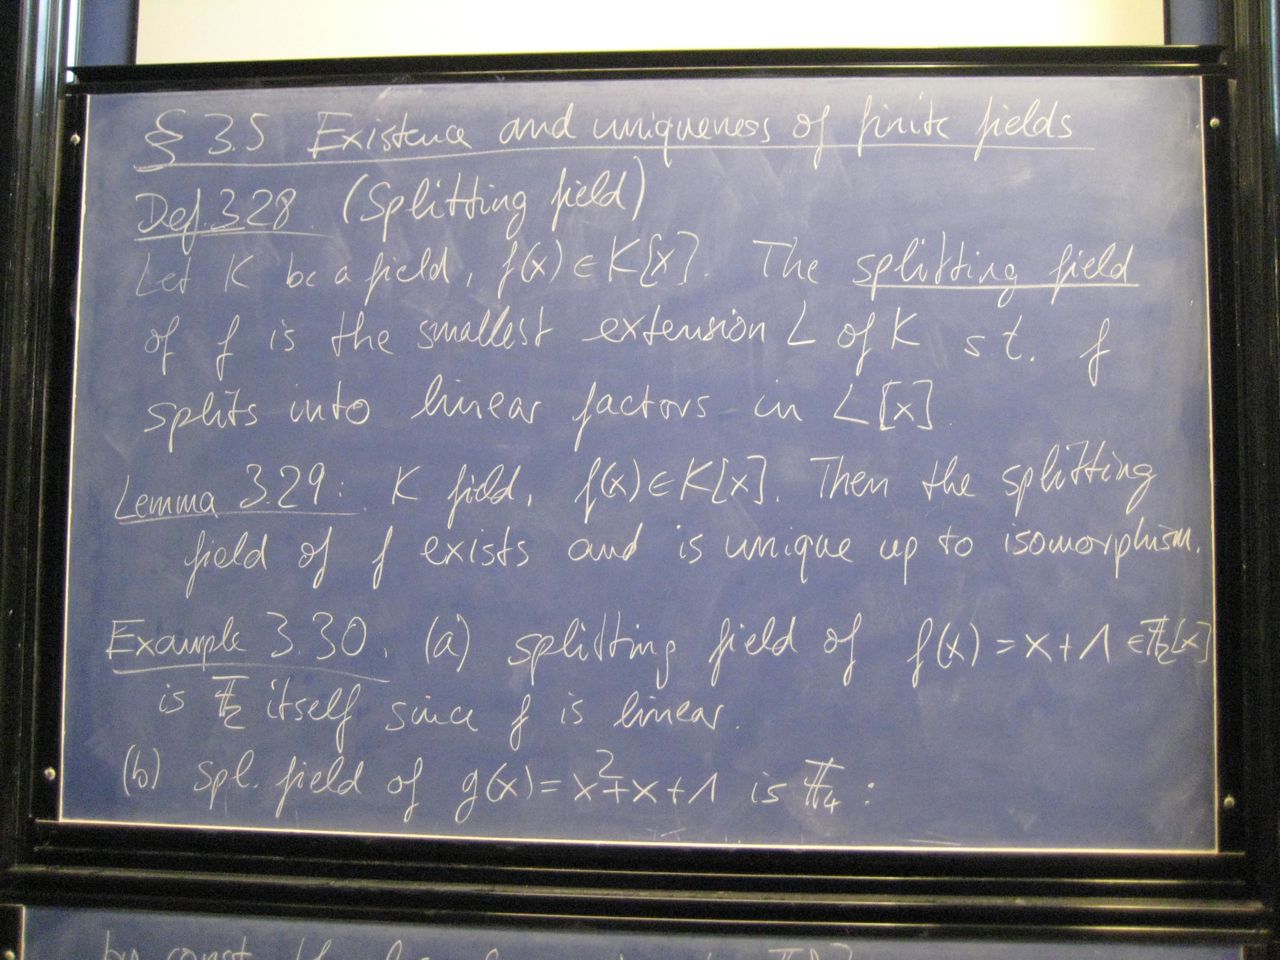 § 3.5 Existence and uniqueness of finite fields
Def. 3.28. (Splitting field)
Let K be a field, f(x) ∈ K[x]. The splitting field
of f is the smallest extension L of K s.t. f
splits into linear factors in L[x].
Lemma 3.29: K field, f(x) ∈ K[x]. Then the splitting
field of f exists and is unique up to isomorphism.
Example 3.30. (a) splitting field of f(x) = x+1 ∈ F₂[x]
is F₂ itself since f is linear.
(b) spl. field of g(x) = x²+x+1 is F₄:
by const